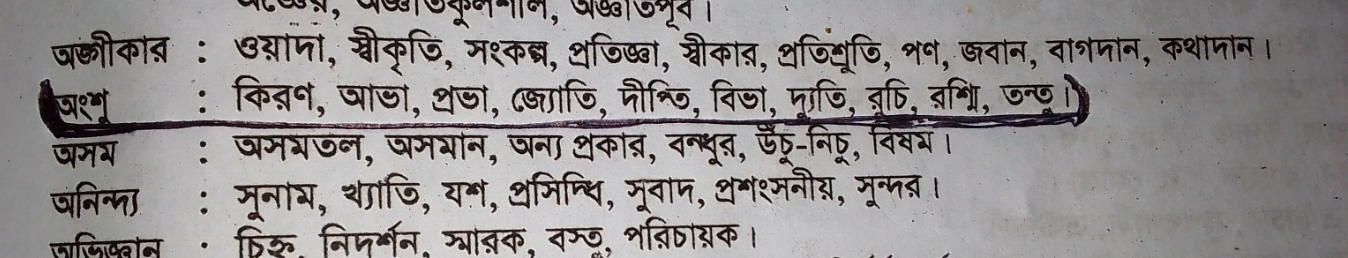 অজ্ঞাতকুলশীল, অজ্ঞাতপূর্ব।
অঙ্গীকার : ওয়াদা, স্বীকৃতি, সংকল্প, প্রতিজ্ঞা, স্বীকার, প্রতিশ্রুতি, পণ, জবান, বাগদান, কথাদান।
অংশু : কিরণ, আভা, প্রভা, জ্যোতি, দীপ্তি, বিভা, দ্যুতি, রুচি, রশ্মি, তন্তু।
অসম : অসমতল, অসমান, অন্য প্রকার, বন্ধুর, উঁচু-নিচু, বিষম।
অনিন্দ্য : সুনাম, খ্যাতি, যশ, প্রসিদ্ধি, সুবাদ, প্রশংসনীয়, সুন্দর।
অভিজ্ঞান : চিহ্ন, নিদর্শন, স্মারক, বস্তু, পরিচায়ক।